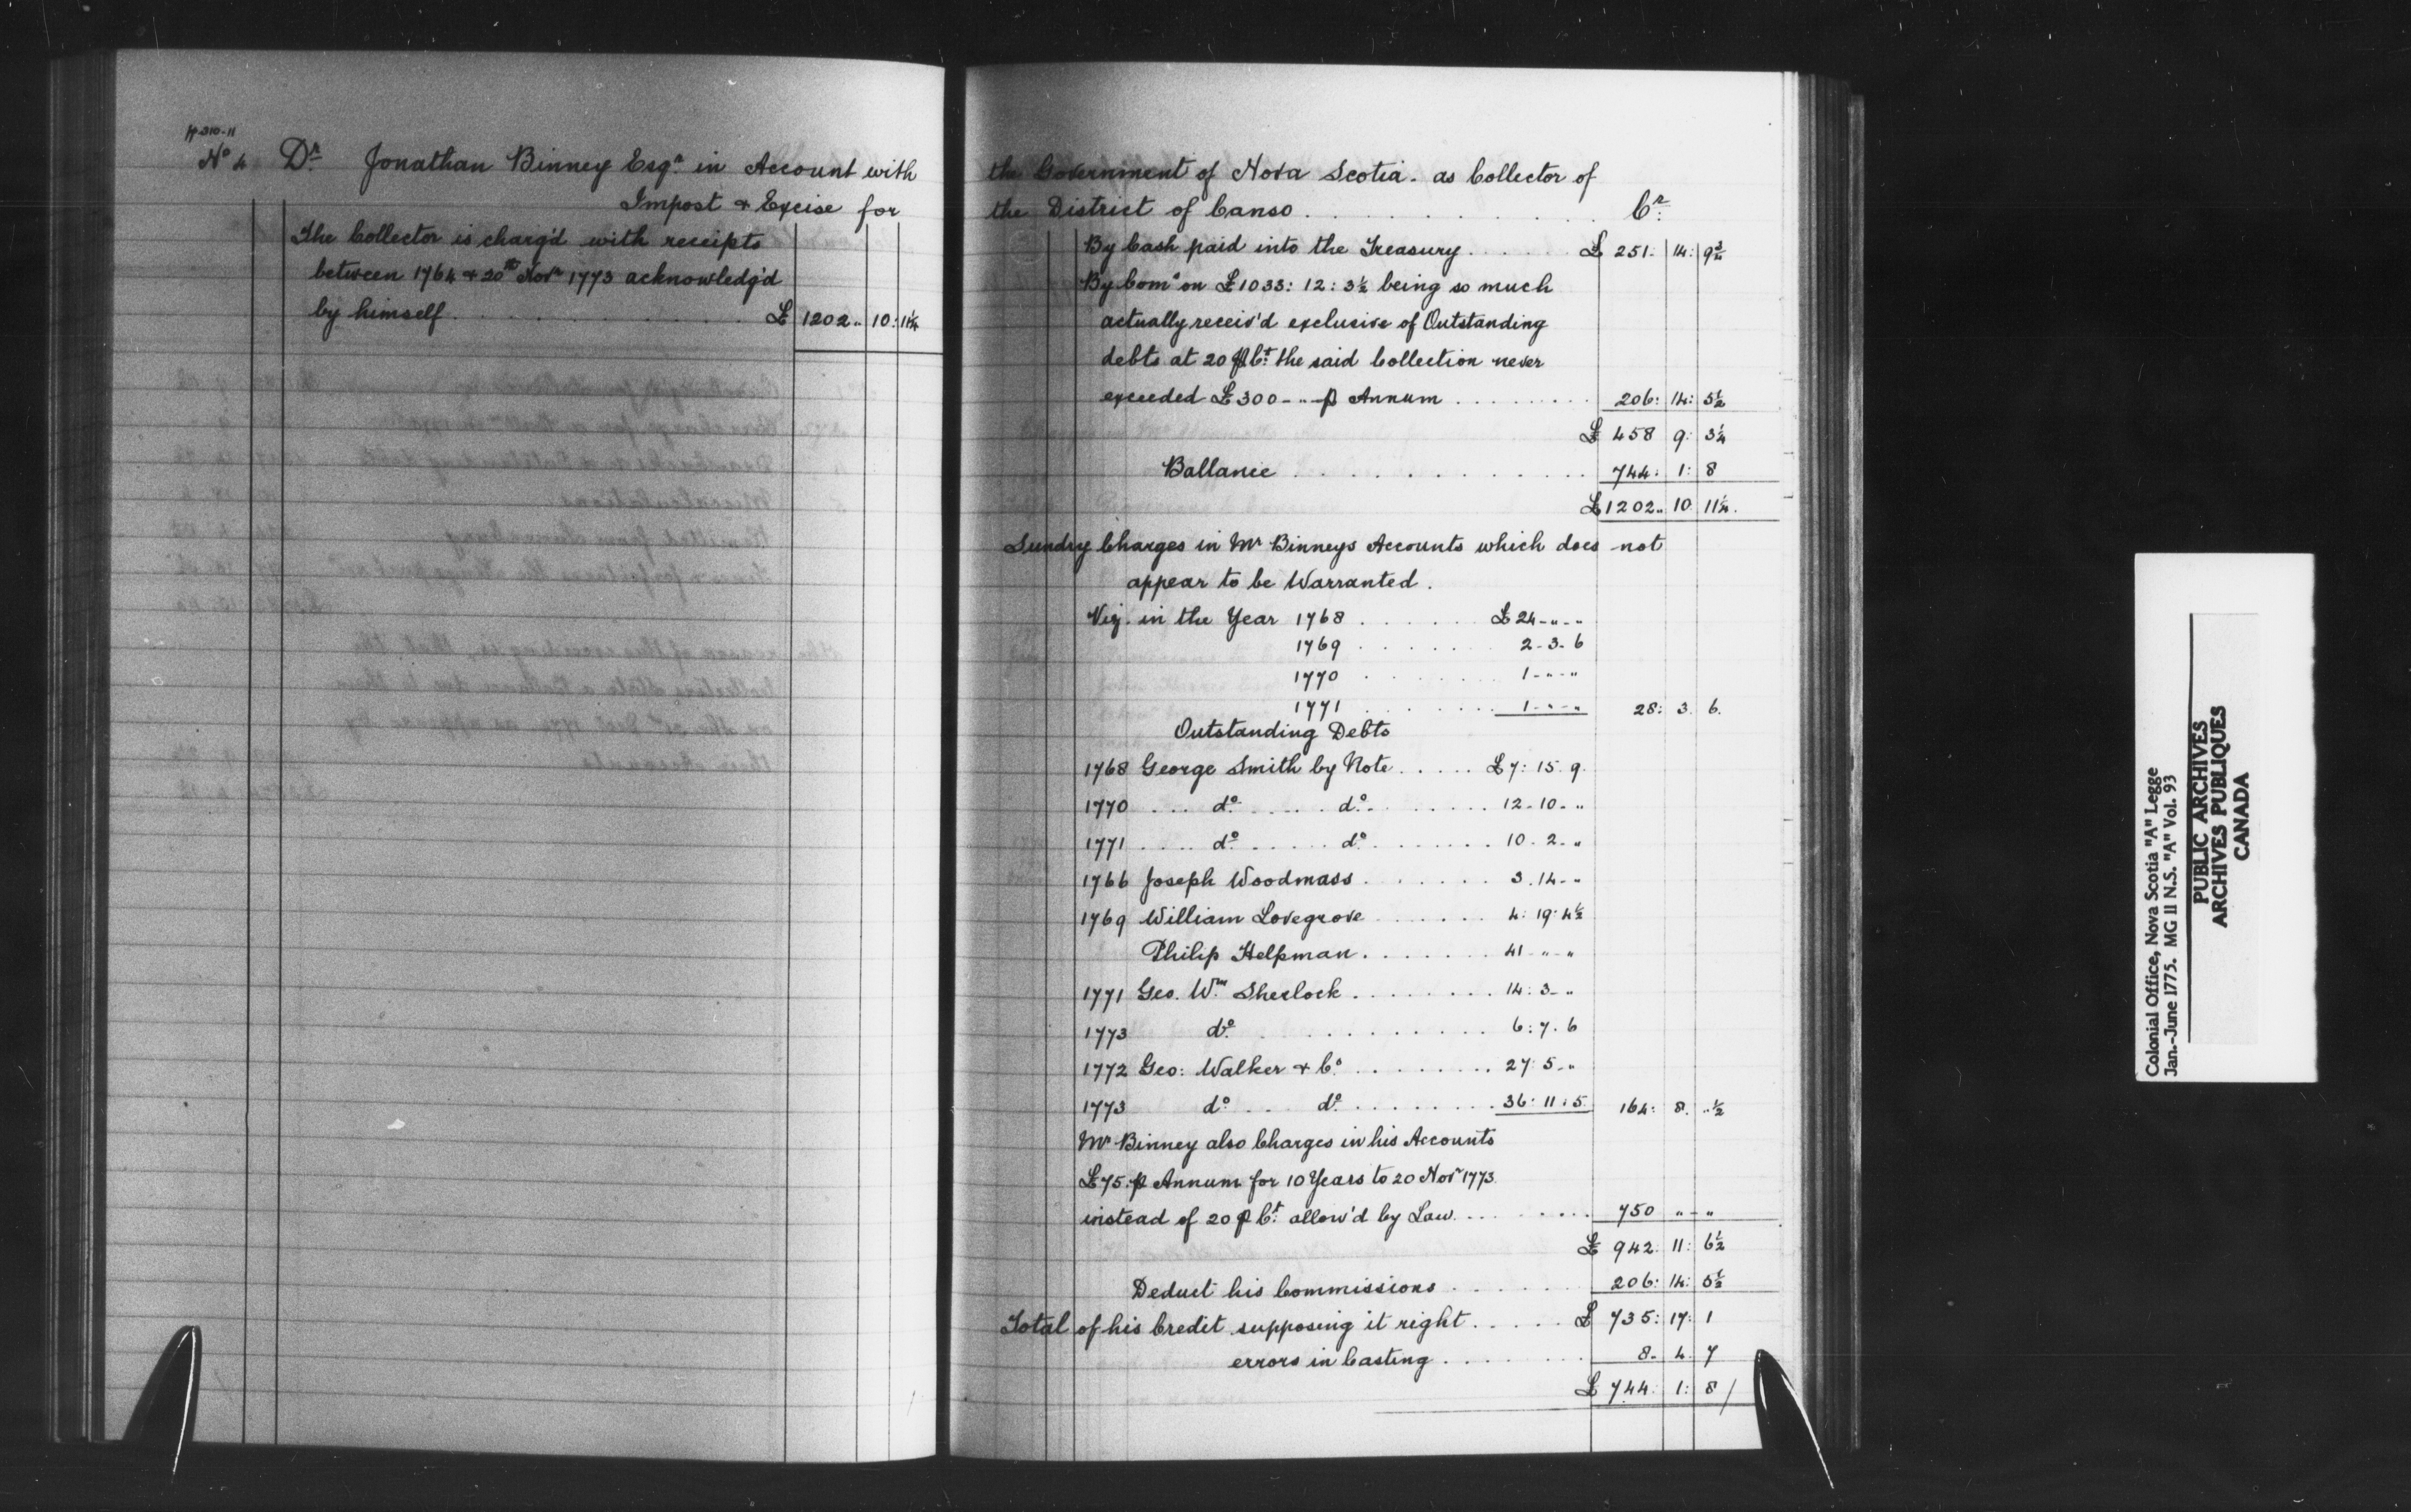 p 310-11
No 4 Dr. Jonathan Binney Esqr. in Account with
Impost & Excise for
The Collector is charg'd with receipts
between 1764 & 20th Novr 1773 acknowledg'd
by himself . . . £ 1202 " 10: 11¼
the Government of Nova Scotia. as Collector of
the District of Canso . . . Cr:
By Cash paid into the Treasury . . . £ 251: 14: 9¾
By Comn on £1033: 12: 3½ being so much
actually receiv'd exclusive of Outstanding
debts at 20 p Ct: the said Collection never
exceeded £300 - " - p Annum . . . 206: 14: 5½
£ 458 9: 3¼
Ballance . . . 744: 1: 8
£1202 " 10 11¼.
Sundry Charges in Mr Binneys Accounts which does not
appear to be Warranted.
Viz. in the Year 1768 . . . £24 - " - "
1769 . . . 2 - 3 - 6
1770 . . . 1 - " - "
1771 . . . 1 - " - " 28: 3. 6.
Outstanding Debts
1768 George Smith by Note . . . £7: 15. 9.
1770 . . . do. . . . do. . . . 12 - 10 - "
1771 . . . do. . . . do. . . . 10 - 2 - "
1766 Joseph Woodmass . . . 3. 14 - "
1769 William Lovegrove . . . 4: 19: 4½
Philip Helpman . . . 41 - " - "
1771 Geo. Wm Sherlock . . . 14: 3 - "
1773 do. . . . 6: 7. 6
1772 Geo: Walker & Co . . . 27: 5 - "
1773 do. . . . do. . . . 36: 11: 5. 164: 8. " ½
Mr Binney also Charges in his Accounts
£75. p Annum for 10 Years to 20 Novr 1773
instead of 20 p Ct: allow'd by Law . . . 750 " - "
£ 942: 11: 6½
Deduct his Commissions . . . 206: 14: 5½
Total of his Credit supposing it right . . . £ 735: 17: 1
errors in Casting . . . 8 - 4. 7
£ 744: 1: 8/
Colonial Office, Nova Scotia "A" Legge
Jan.-June 1775. MG 11 N.S. "A" Vol. 93
PUBLIC ARCHIVES
ARCHIVES PUBLIQUES
CANADA